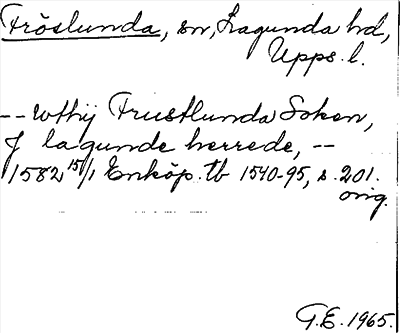 Fröslunda, sn, Lagunda hd,
Upps. l.
-- wthÿ Frustlunda Soken,
J lagunde herrede, --
1582 15/1 Enköp. tb 1540-95, s. 201.
orig.
G.E. 1965.